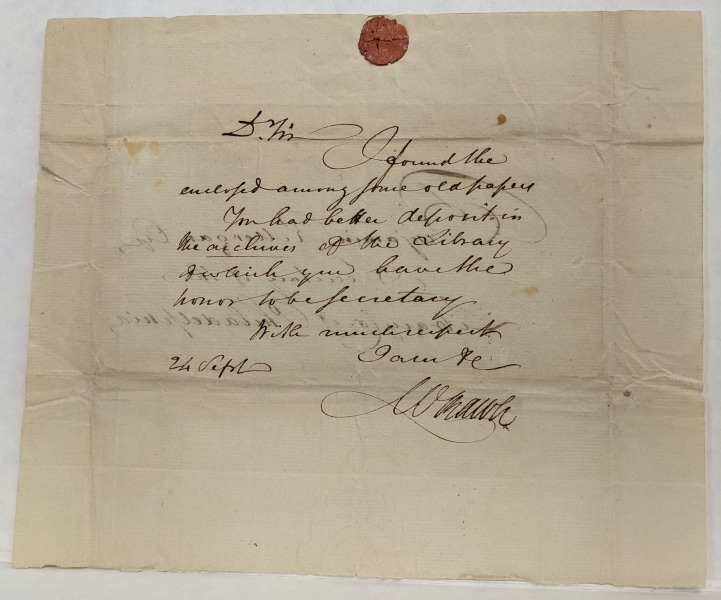 D. Sir
I found the
enclosed among some old papers
You had better deposit in
the archives of the Library
of which you have the
honor to be secretary
With much respect
24 Sept I am &c
Rawle